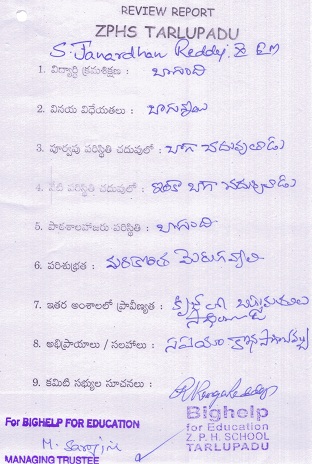 REVIEW REPORT
ZPHS TARLUPADU
S. Janardhan Reddy, EM
1. విద్యార్థి క్రమశిక్షణ : బాగుంది
2. వినయ విధేయతలు : బాగున్నాయి
3. పూర్వపు పరిస్థితి చదువులో : బాగా చదువుతాడు
4. నేటి పరిస్థితి చదువులో : ఇంకా బాగా చదువుతాడు
5. పాఠశాలహాజరు పరిస్థితి : బాగుంది
6. పరిశుభ్రత : మరికొంత మెరుగవ్వాలి
7. ఇతర అంశాలలో ప్రావీణ్యత :
8. అభిప్రాయాలు / సలహాలు :
9. కమిటి సభ్యుల సూచనలు :
Bighelp
For BIGHELP FOR EDUCATION
for Education
Z. P. H. SCHOOL
TARLUPADU
MANAGING TRUSTEE